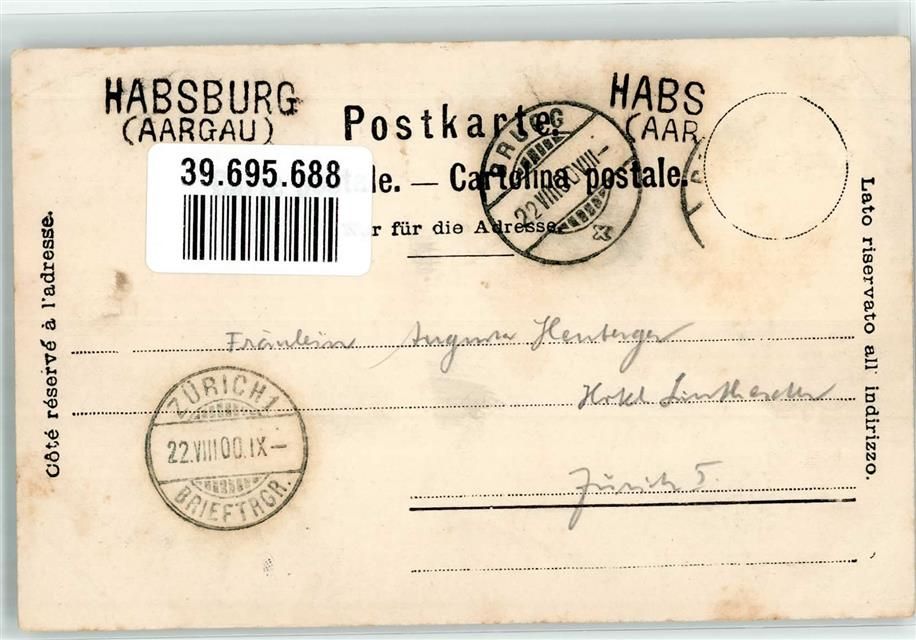 HABSBURG
(AARGAU)
HABS
(AAR
Postkarte.
39.695.688
le. — Cartolina postale.
r für die Adresse.
BRUGG
22.VIII.00.VII–
Côté réservé à l'adresse.
Lato riservato all' indirizzo.
Fräulein Augusta Henberger
Hotel
Zürich 5.
ZÜRICH 1
22.VIII.00.IX–
BRIEFTRGR.